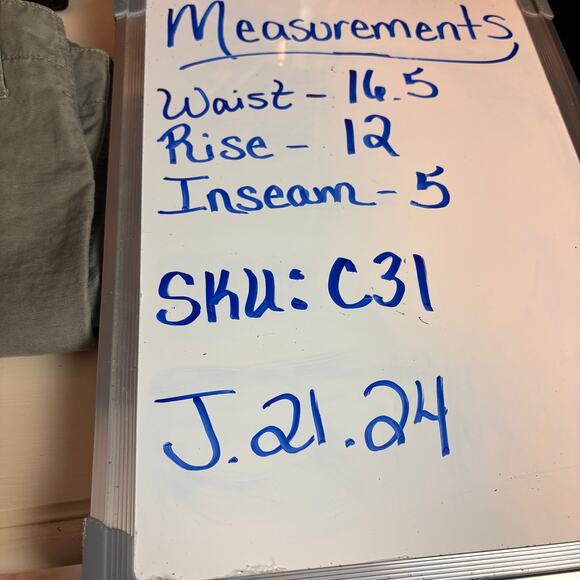 Measurements
Waist - 16.5
Rise - 12
Inseam - 5
SKU: C31
J.21.24